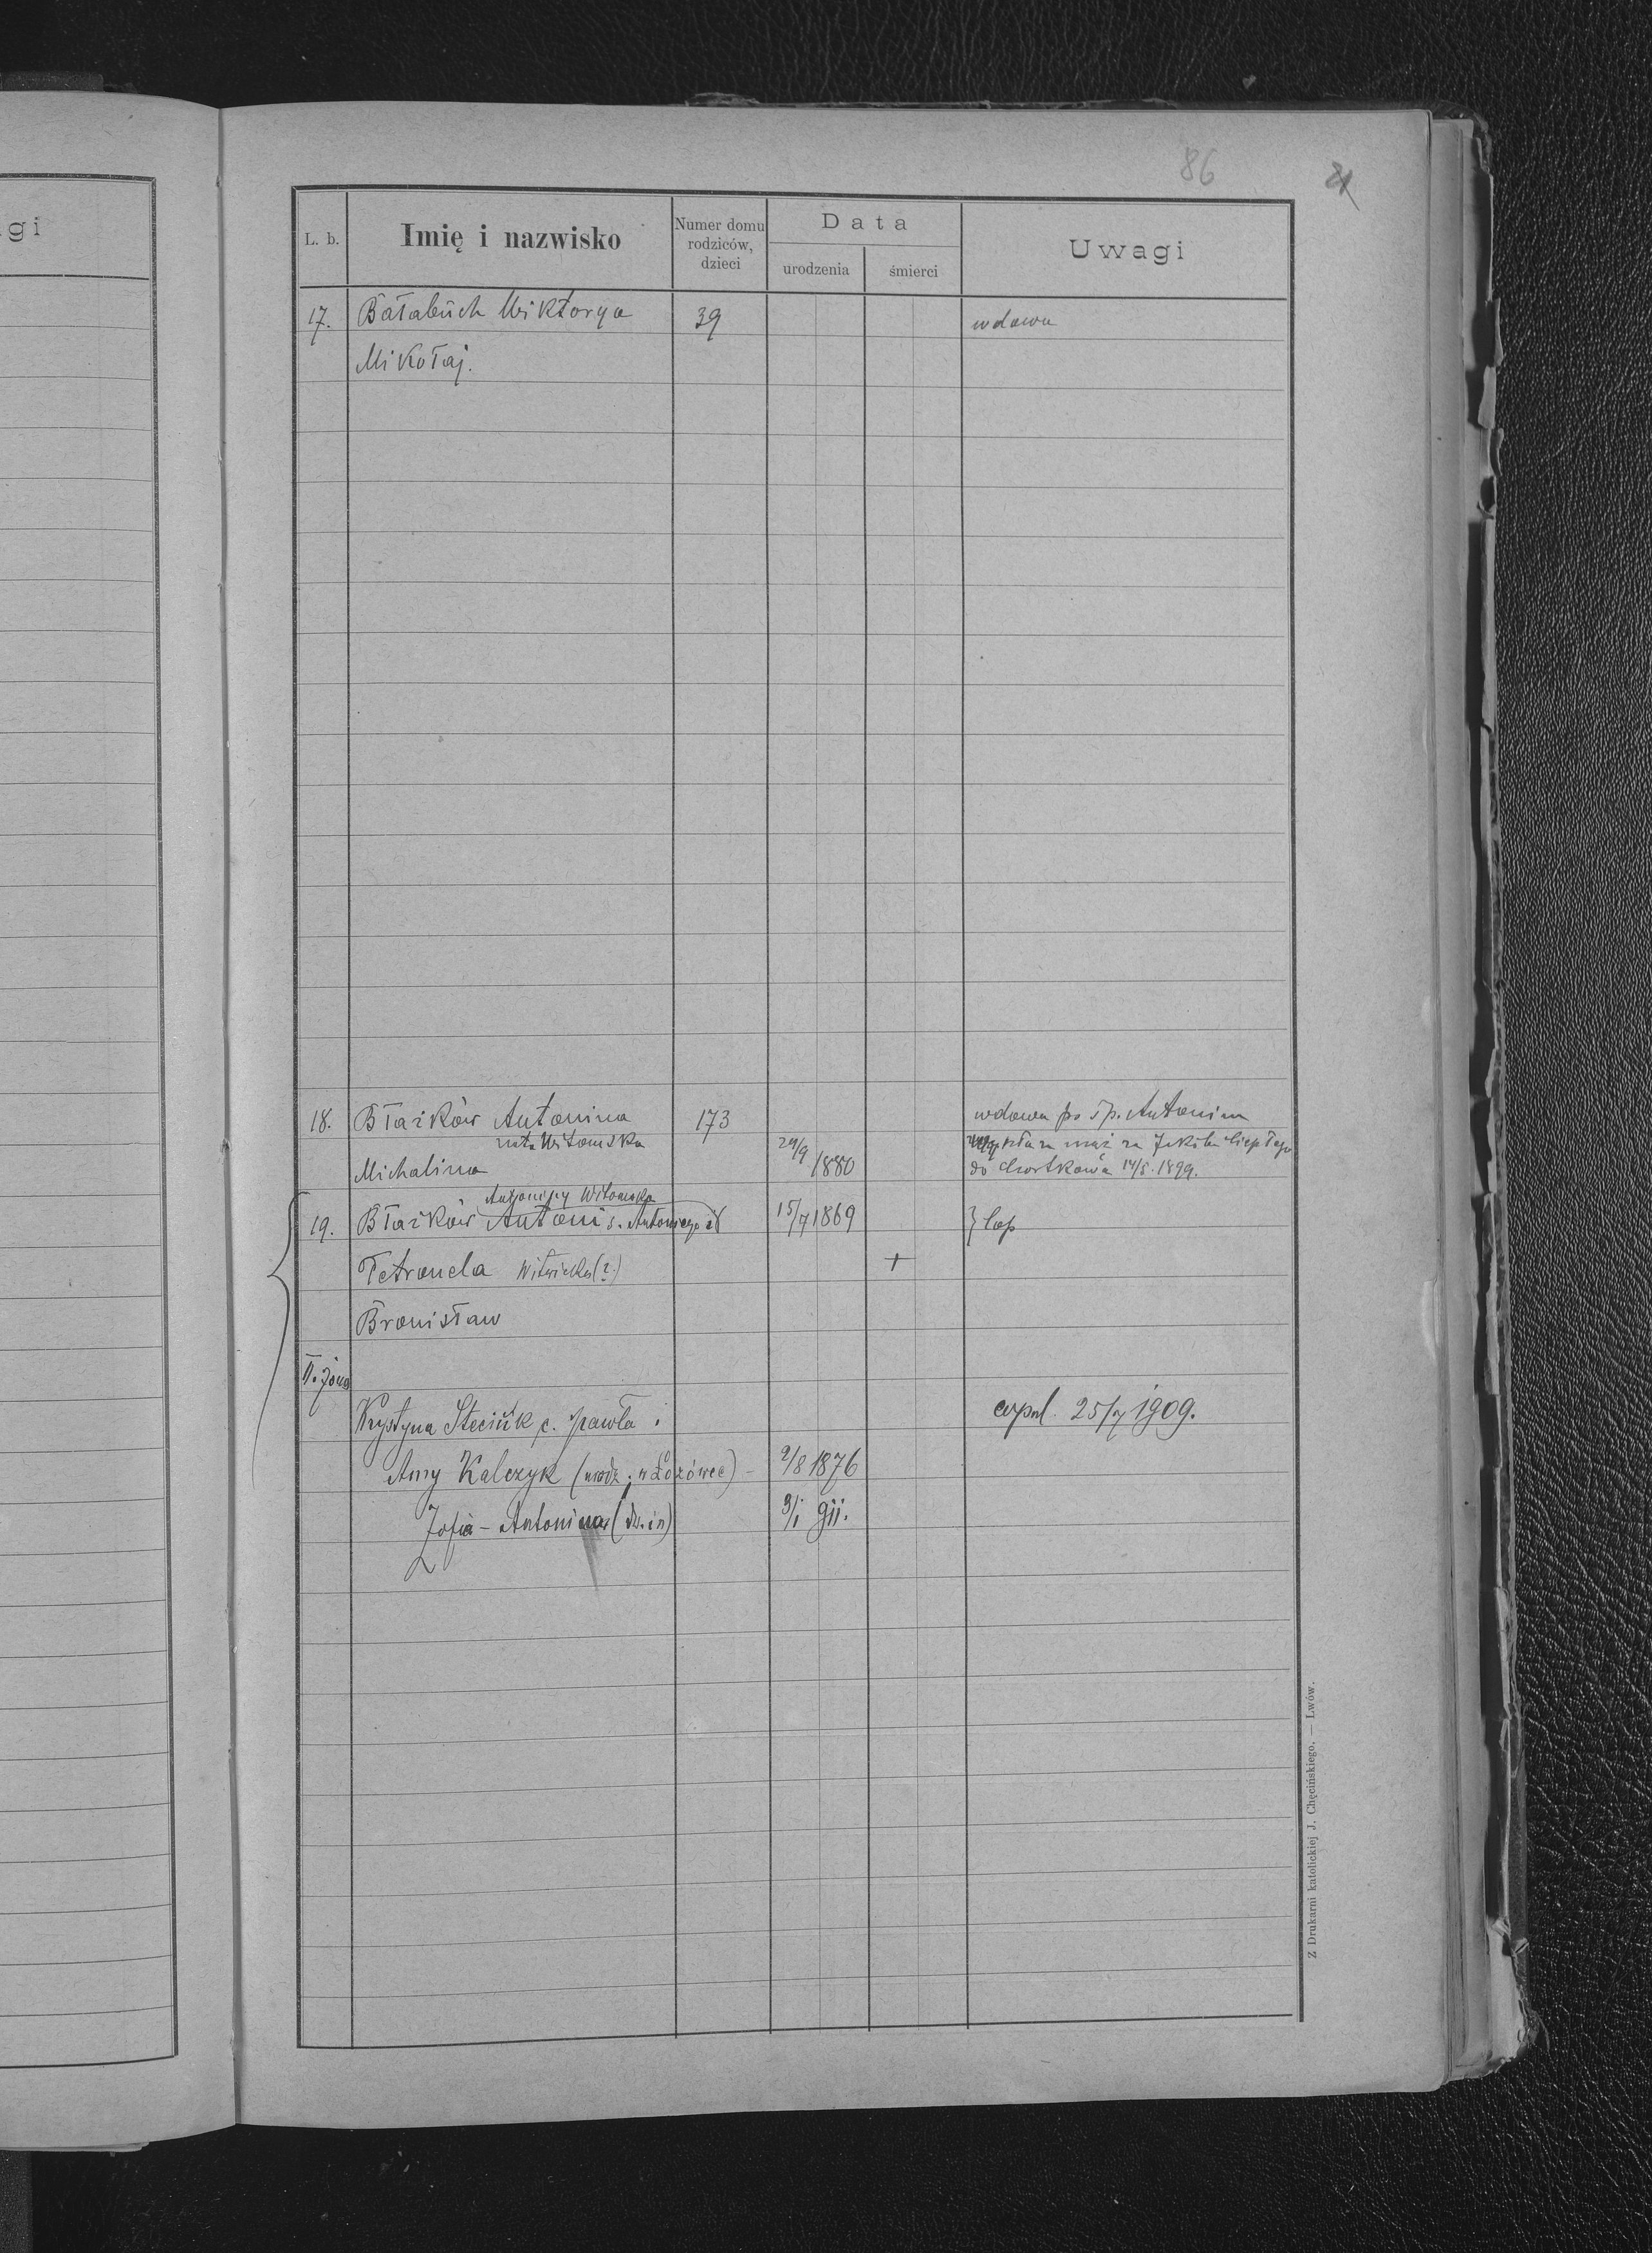 agi
86
21
L. b.
Imię i nazwisko
Numer domu rodziców, dzieci
Data
urodzenia
śmierci
Uwagi
17. Bałabuch Wiktorya 39 wdowa
Mikołaj.
18. Błażków Antonina 173 wdowa po śp. Antonim
nata Witomska
Michalina 29/9 1880 za mąż za Jakóba
do Czortkowa 14/5. 1899.
Antoniny Witomska
19. Błażków Antoni s. Antoniego i 15/7 1869
Petronela Witwicka (?) +
Bronisław
II. żona
Krystyna Steciuk c. Pawła i 25/7 1909.
Anny Kalczyk (urodz. w Łozówce) – 2/8 1876
Zofia – Antonina 3/1 911.
Z Drukarni katolickiej J. Chęcińskiego. — Lwów.